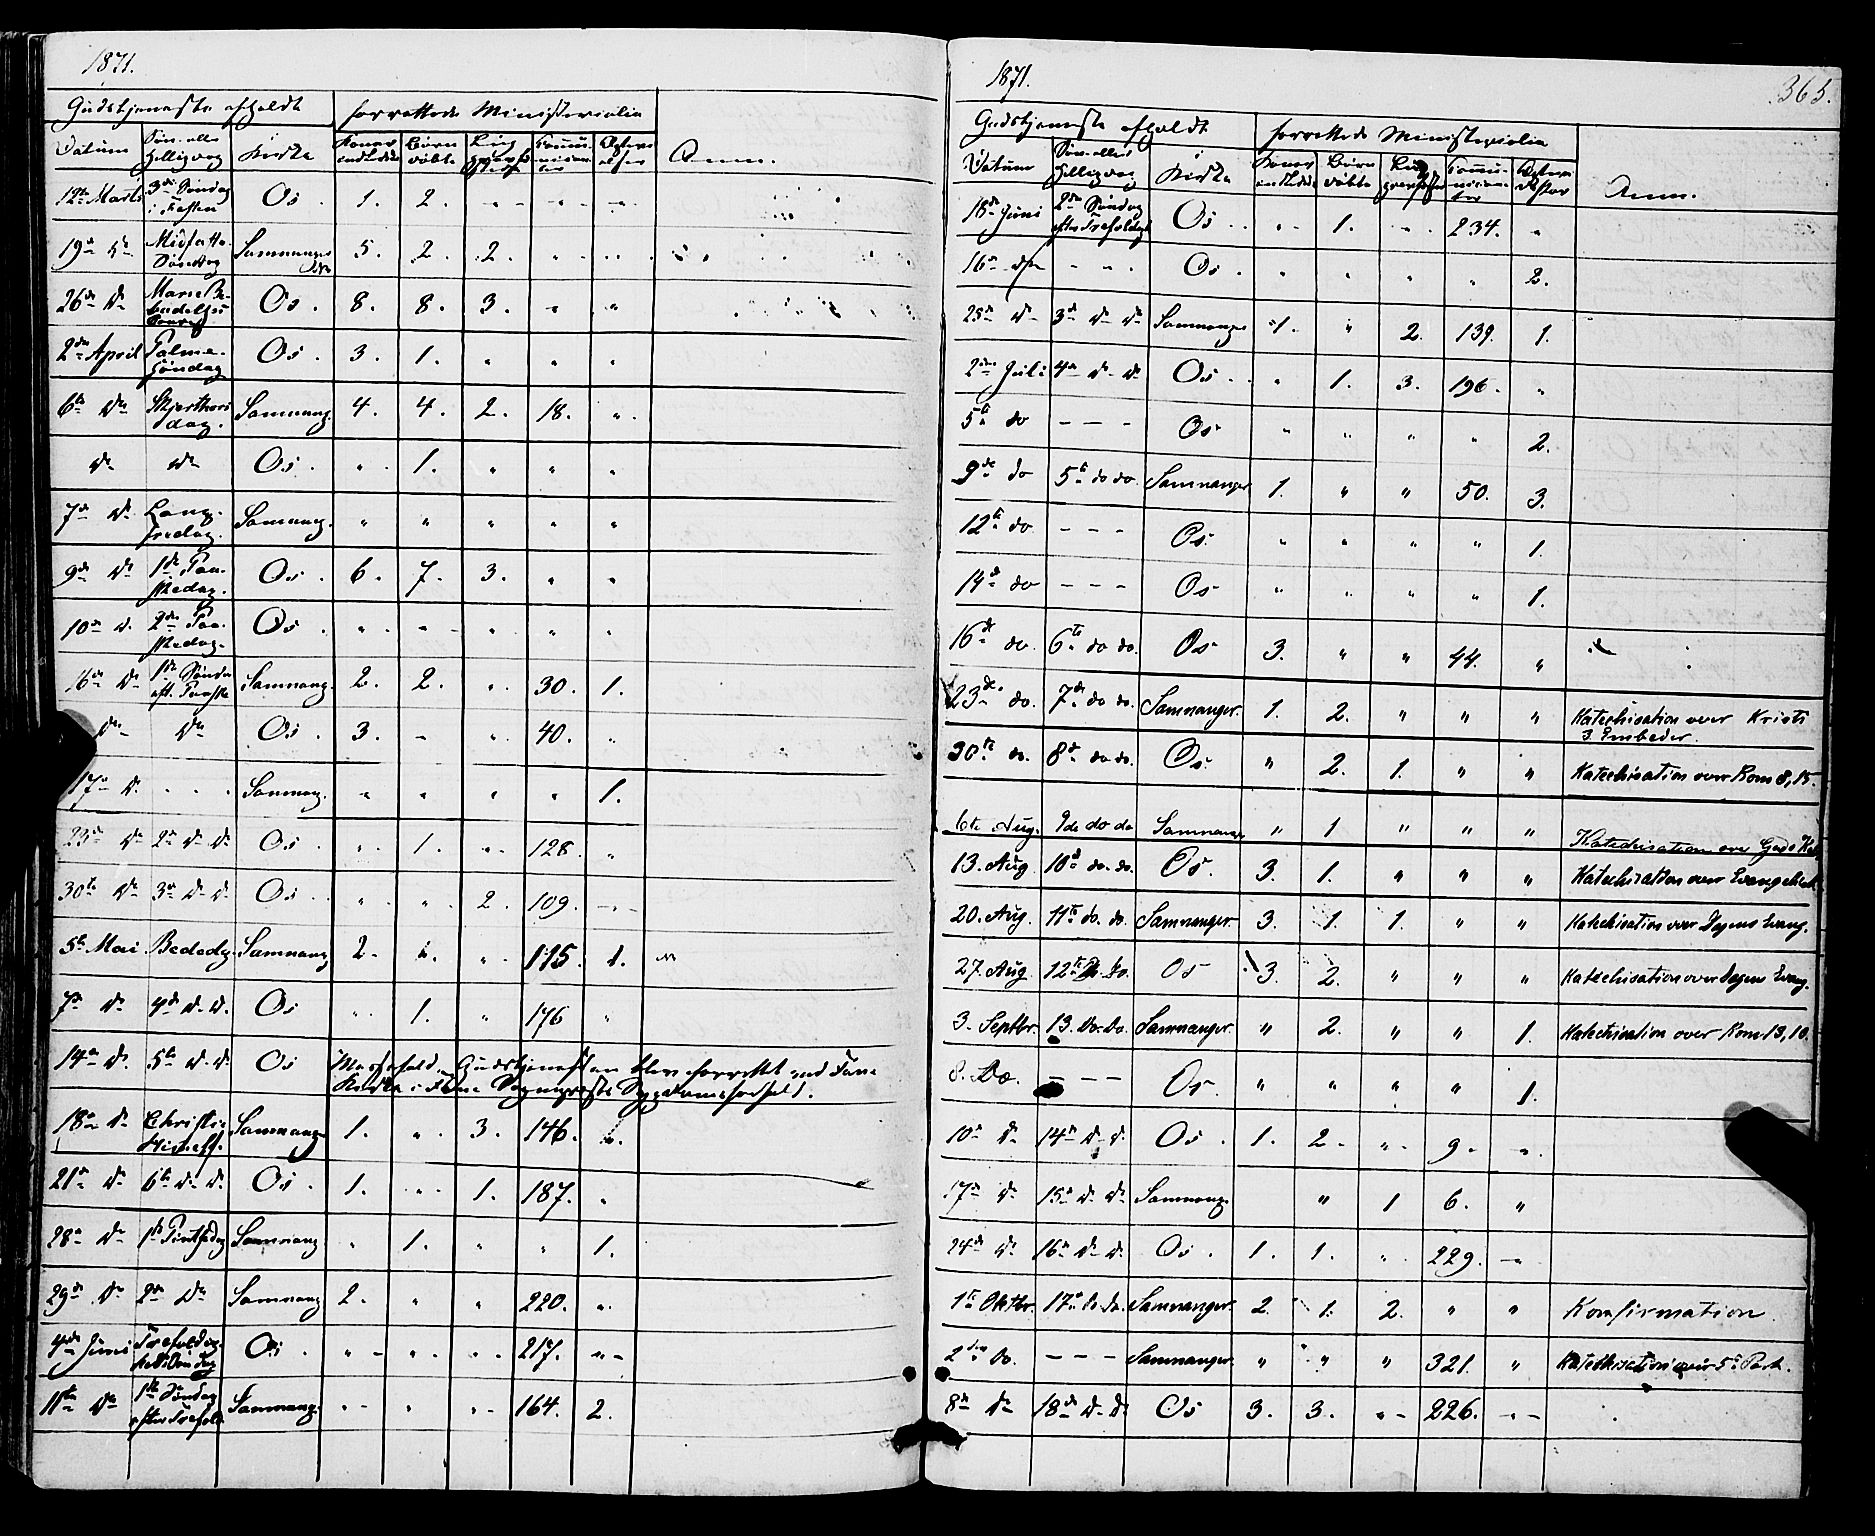 1871.
Gudstjeneste afholdt
forrettede Ministerialia
Datum
Kirke
Anm.
12te Marts 3die Søndag i Fasten Os 1. 2. " " "
19de do Midfaste Søndag Samnanger 5. 2. 2. " "
26de do Mariæ Be- Os 8. 8. 3. " "
2den April Palme- Søndag Os 3. 1. " " "
6te do Skjærthors dag. Samnang. 4. 4. 2. 18. "
do do Os " 1. " " "
7de do Lang- fredag. Samnang. " " " " "
9de do 1ste Paa- skedag. Os 6. 7. 3. " "
10de d. 2den Paa- skedag. Os " " " " "
16de do 1ste Søndag eft. Paaske Samnang. 2. 2. " 30. 1.
do do Os 3. " " 40. "
17de d. Samnang. " " " " 1.
23de do 2den d. d. Os " 1. " 128 "
30te do 3die d. d. Os " " 2. 109. "
5te Mai Bededg. Samnang 2. " " 115. 1.
7de do 4de d. d. Os " 1. " 176 "
14de d. 5te d. d. Os Messefald. Gudstjenesten blev forrettet ved Fane
Kirke i Fane Sognepræsts Sygdomsforfald.
18de do Christi Himmelf. Samnang 1. " 3. 146. "
21de do 6te d. d. Os 1. " 1. 187. "
28de do 1ste Pintsedg Samnang " 1. " " 1.
29de do 2den do Samnang 2. " " 220. "
4de Juni Os " " " 217. "
11te do 1ste Søndag efter Trefold. Samnang. " " " 164. 2.
1871.
365.
Gudstjeneste afholdt
forrettede Ministerialia
Datum
Kirke
Anm.
18de Juni 2den Søndag efter Trefoldigh Os " 1. " 234. "
16de do " " Os " " " " 2.
25de do 3die do do Samnanger 1. " 2. 139. 1.
2den Juli 4de do do Os " 1. 3. 196. "
5te do - - - Os " " " " 2.
9de do 5te do do. Samnanger 1. " " 50. 3.
12te do - - - Os. " " " " 1.
14de do - - - Os " " " " 1.
16de do. 6te do do. Os 3. " " 44. "
23de do. 7de do do. Samnanger. 1. 2. " " " Katechisation over Kristi
3 Embeder.
30te do. 8de do do. Os. " 2. 1. " " Katechisation over Rom 8,15.
6te Aug. 9de do do Samnanger " 1 " " " Katechisation over Guds
13. Aug 10de do. do. Os. 3. 1. " " " Katechisation over Evangeliet
20. Aug. 11te do. do. Samnanger. 3. 1. 1. " " Katechisation over Dagens Evang.
27. Aug. 12te do. do. Os 3. 2. " " " Katechisation over dagens Evang.
3. Septbr. 13. do. do. Samnanger. " 2. " " 1. Katechisation over Rom 13,10.
8. Do. - - - Os. " " " " 1.
10de do 14de d. d. Os 1. 2. " 9. "
17de do 15de d. do Samnang. " 1 6. "
24de do 16de do d. Os 1. 1. " 229. "
1ste Oktbr. 17de do. do. Samnanger. 2. 1. 2. " " Konfirmation.
2den do. - - - Samnanger. " " " 321. " Katechisation over 5te Part.
8de do 18de d. do Os 3. 3. " 226. "